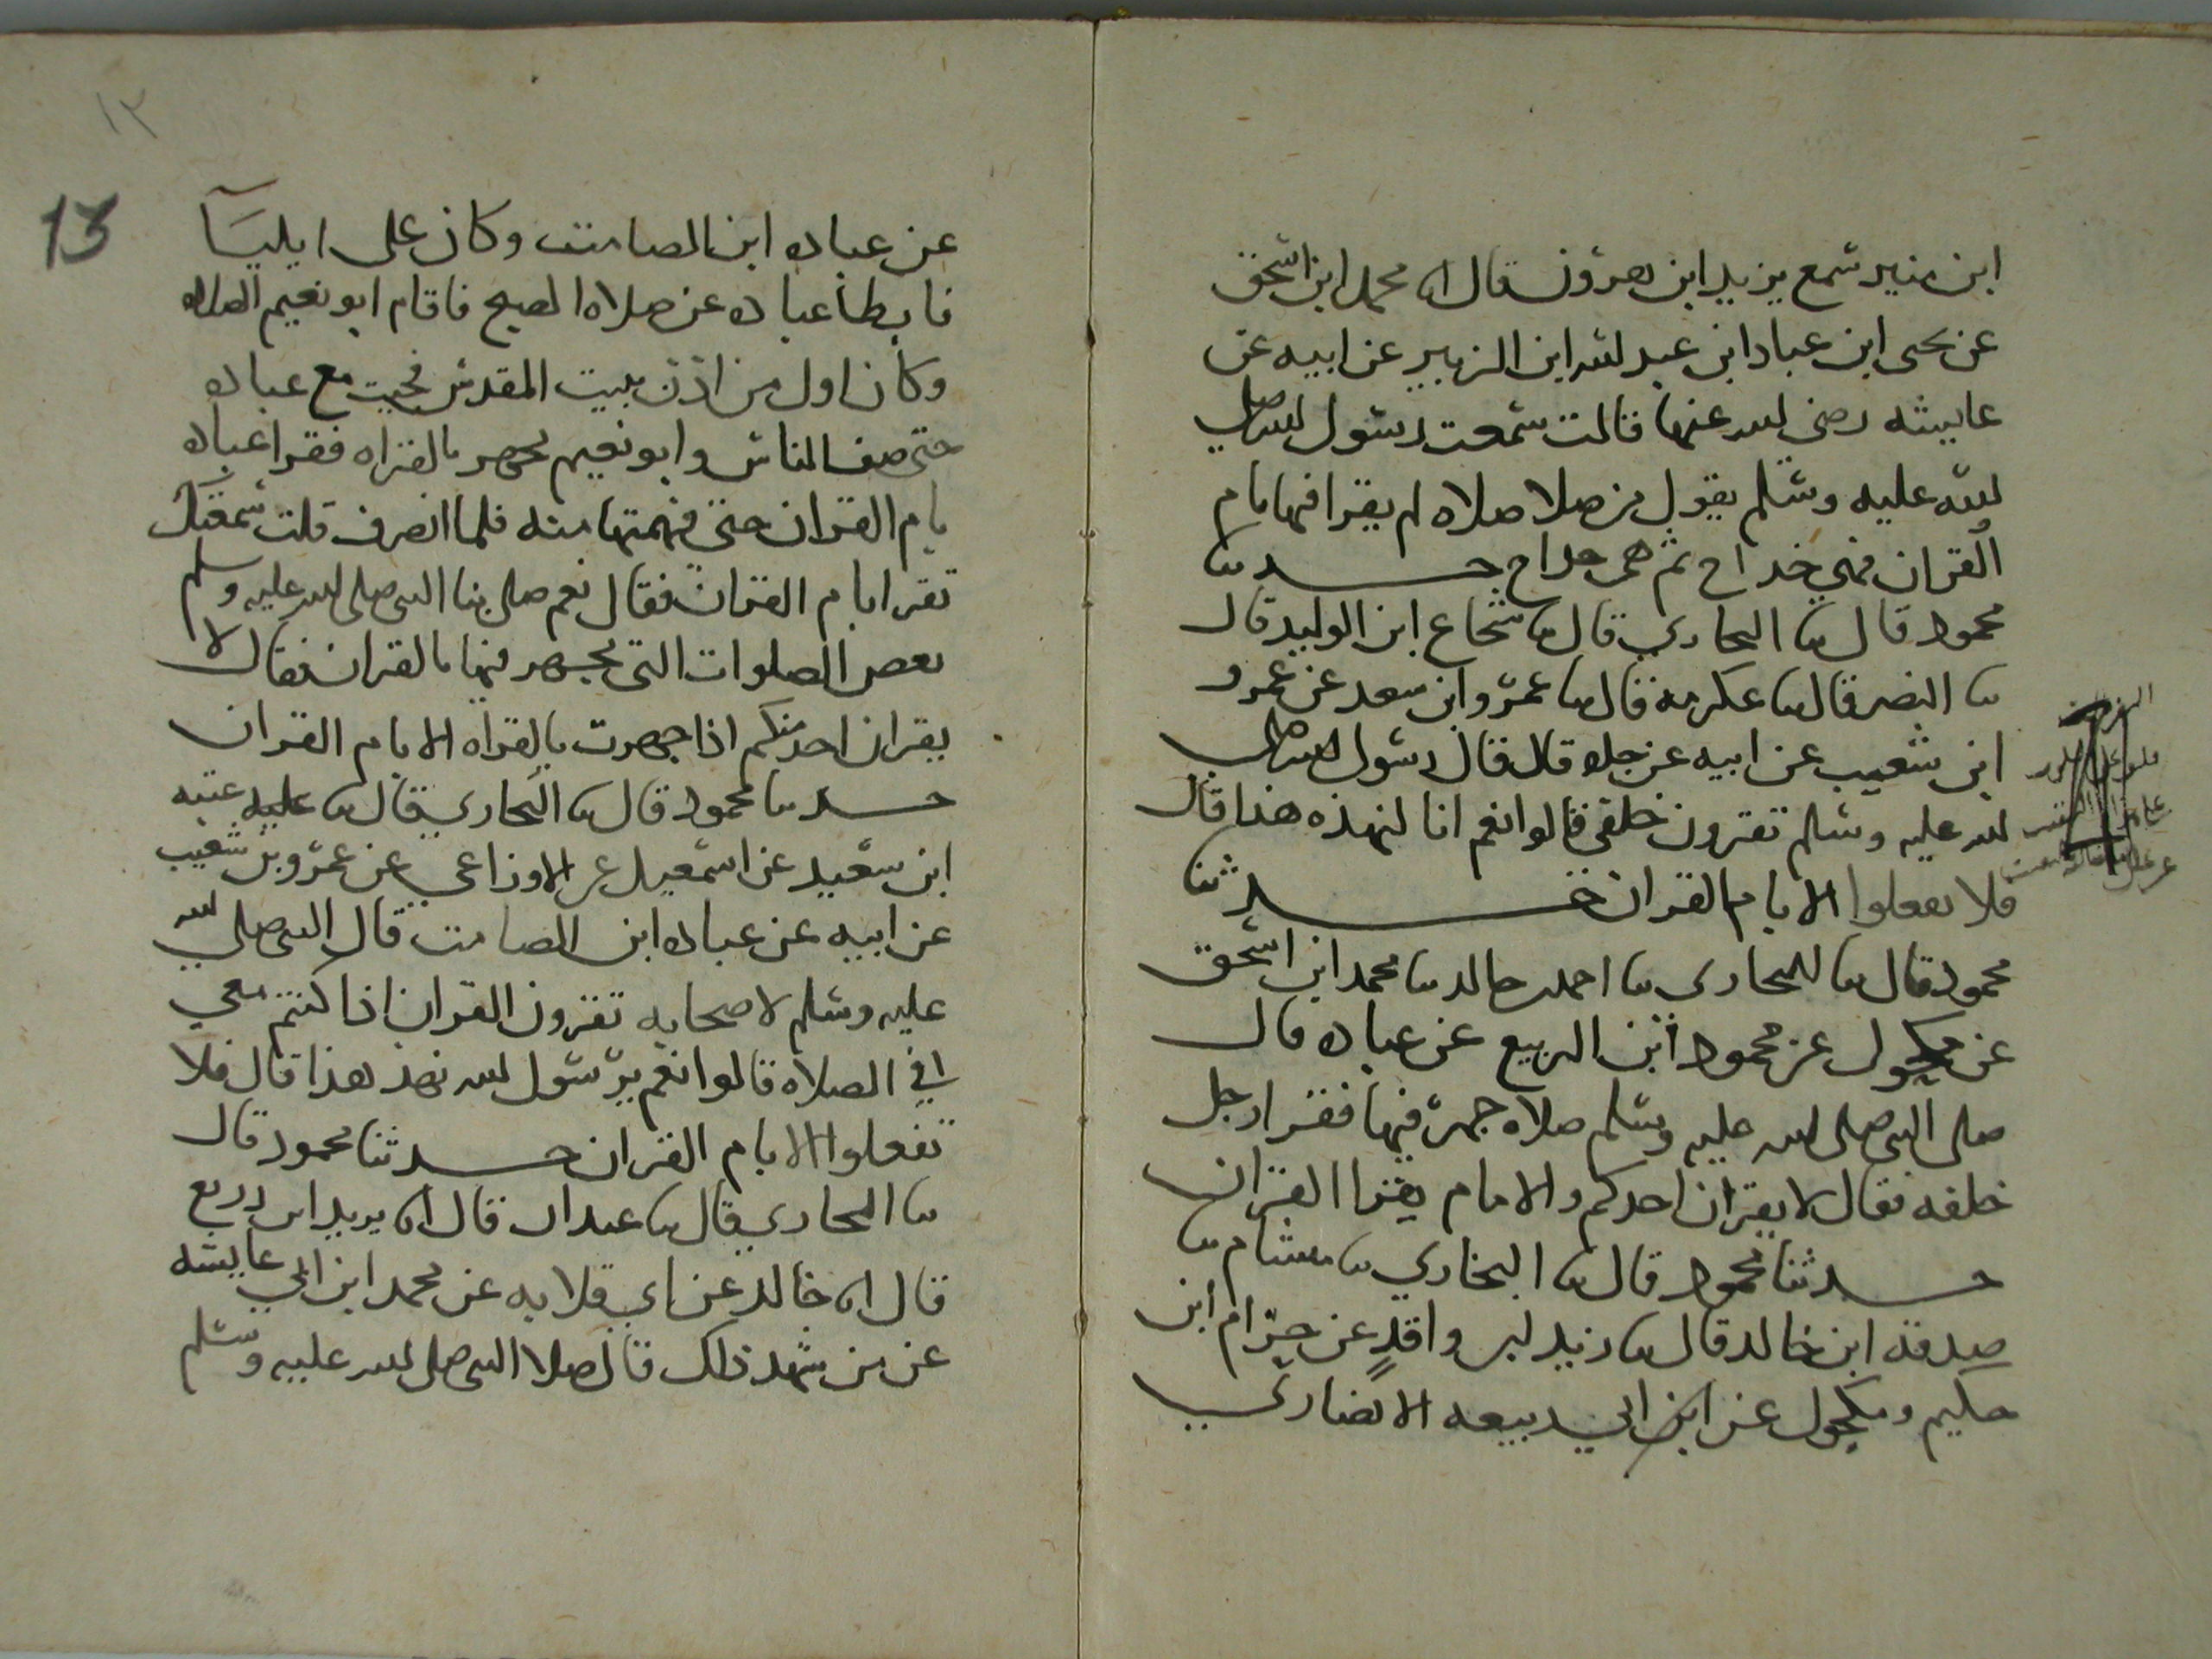 ابن منير سمع يزيد ابن هرون قال انا محمد ابن اسحق
عن يحيى ابن عباد ابن عبد الله ابن الزبير عن ابيه عن
عايشه رضي الله عنها قالت سمعت رسول الله صلى
الله عليه وسلم يقول من صلا صلاه لم يقرا فيها بام
القران فهي خداج ثم هي خداج حدثنا
محمود قال ثنا البخاري قال ثنا شجاع ابن الوليد قال
ثنا النضر قال ثنا عكرمه قال ثنا عمرو ابن سعد عن عمرو
ابن شعيب عن ابيه عن جده قال قال رسول الله صلى
الله عليه وسلم تقرون خلفي قالوا نعم انا لنهذه هذا قال
فلا تفعلوا الا بام القران حدثنا
محمود قال ثنا البخاري ثنا احمد خالد ثنا محمد ابن اسحق
عن مكحول عن محمود ابن الربيع عن عباده قال
صلى النبي صلى الله عليه وسلم صلاه جهر فيها فقرا رجل
خلفه فقال لا يقران احدكم والامام يقرا القران
حدثنا محمود قال ثنا البخاري ثنا هشام ثنا
صدقه ابن خالد قال ثنا زيد ابن واقد عن حرام ابن
حكيم ومكحول عن ابن ابي ربيعه الانصاري
١٣
13
عن عباده ابن الصامت وكان على ايليآ
فابطا عباده عن صلاه الصبح فاقام ابو نعيم الصلاه
وكان اول من اذن ببيت المقدس فجيت مع عباده
حتى صف الناس وابو نعيم يجهر بالقراه فقرا عباده
بام القران حتى فهمتها منه فلما انصرف قلت سمعتك
تقرا بام القران فقال نعم صلى بنا النبي صلى الله عليه وسلم
بعض الصلوات التي يجهر فيها بالقران فقال لا
يقران احد منكم اذا جهرت بالقراه الا بام القران
حدثنا محمود قال ثنا البخاري قال ثنا عتبه
ابن سعيد عن اسمعيل عن الاوزاعي عن عمرو بن شعيب
عن ابيه عن عباده ابن الصامت قال النبي صلى الله
عليه وسلم لاصحابه تقرون القران اذا كنتم معي
في الصلاه قالوا نعم يرسول الله نهذ هذا قال فلا
تفعلوا الا بام القران حدثنا محمود قال
ثنا البخاري قال ثنا عبدان قال انا يزيد ابن زريع
قال انا خالد عن ابي قلابه عن محمد ابن ابي عايشه
عن من شهد ذلك قال صلا النبي صلى الله عليه وسلم